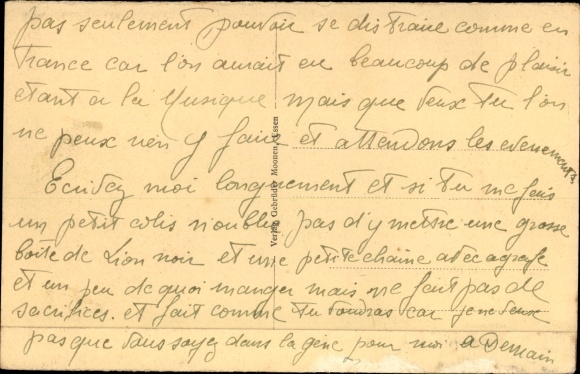 pas seulement pouvoir se distraire comme en
France car l'on aurait eu beaucoup de plaisir
etant a la Musique mais que veux tu l'on
ne peux rien y faire et attendons les evenements
Ecrivez moi longuement et si tu me fais
un petit colis n'oubliez pas d'y mettre une grosse
boite de Lion noir et une petite chaine avec agrafe
et un peu de quoi manger mais ne fait pas de
sacrifices. et fait comme tu voudras car je ne veux
pas que vous soyez dans la gêne pour moi a Demain
Verlag Gebrüder Moonen, Essen